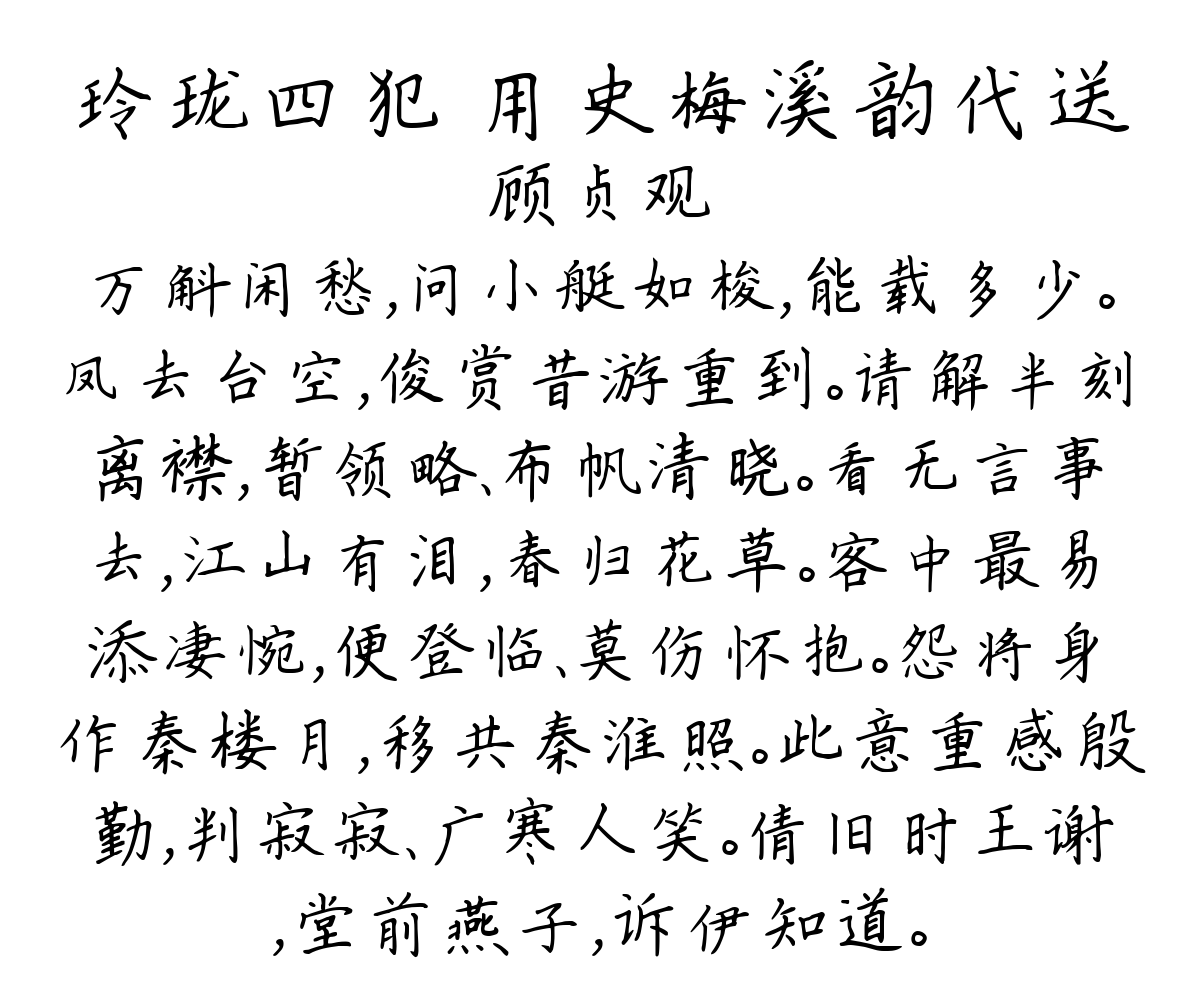 玲珑四犯 用史梅溪韵代送
顾贞观
万斛闲愁,问小艇如梭,能载多少。
凤去台空,俊赏昔游重到。请解半刻
离襟,暂领略、布帆清晓。看无言事
去,江山有泪,春归花草。客中最易
添凄惋,便登临、莫伤怀抱。怨将身
作秦楼月,移共秦淮照。此意重感殷
勤,判寂寂、广寒人笑。倩旧时王谢
,堂前燕子,诉伊知道。